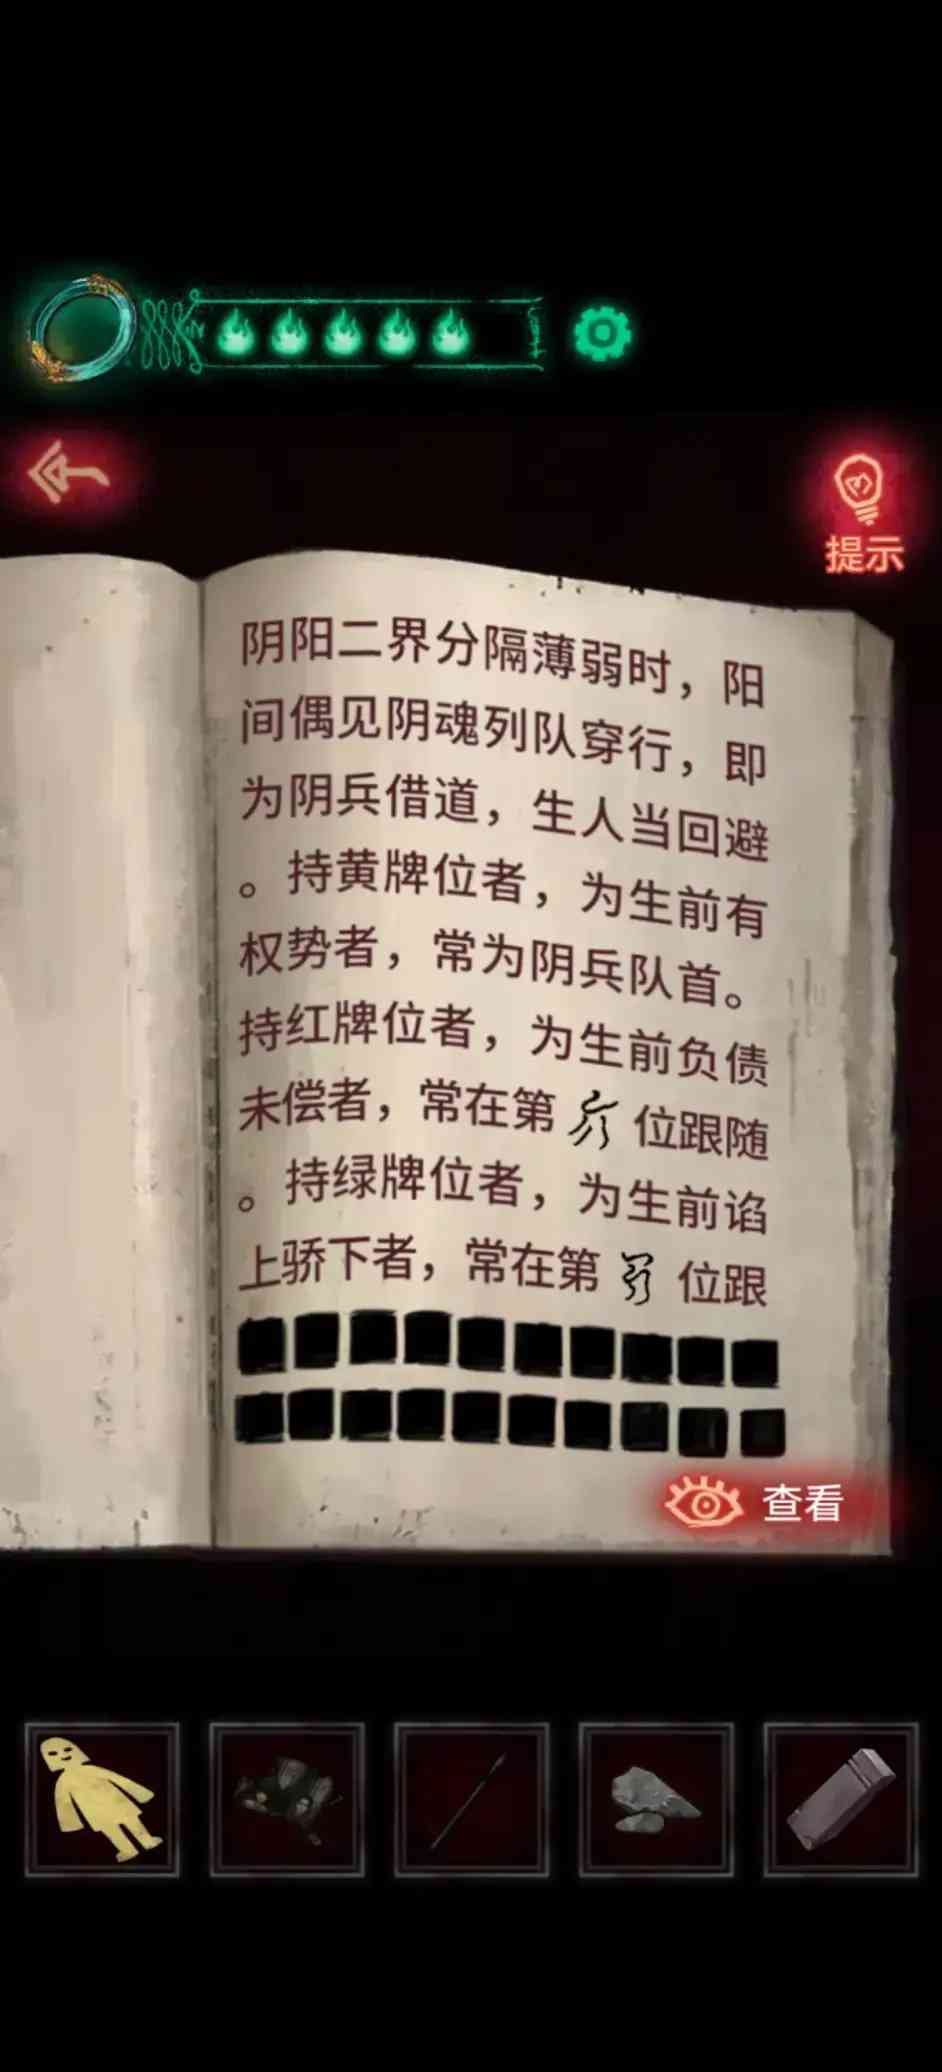 提示
阴阳二界分隔薄弱时，阳
间偶见阴魂列队穿行，即
为阴兵借道，生人当回避
。持黄牌位者，为生前有
权势者，常为阴兵队首。
持红牌位者，为生前负债
未偿者，常在第 位跟随
。持绿牌位者，为生前谄
上骄下者，常在第 位跟
查看